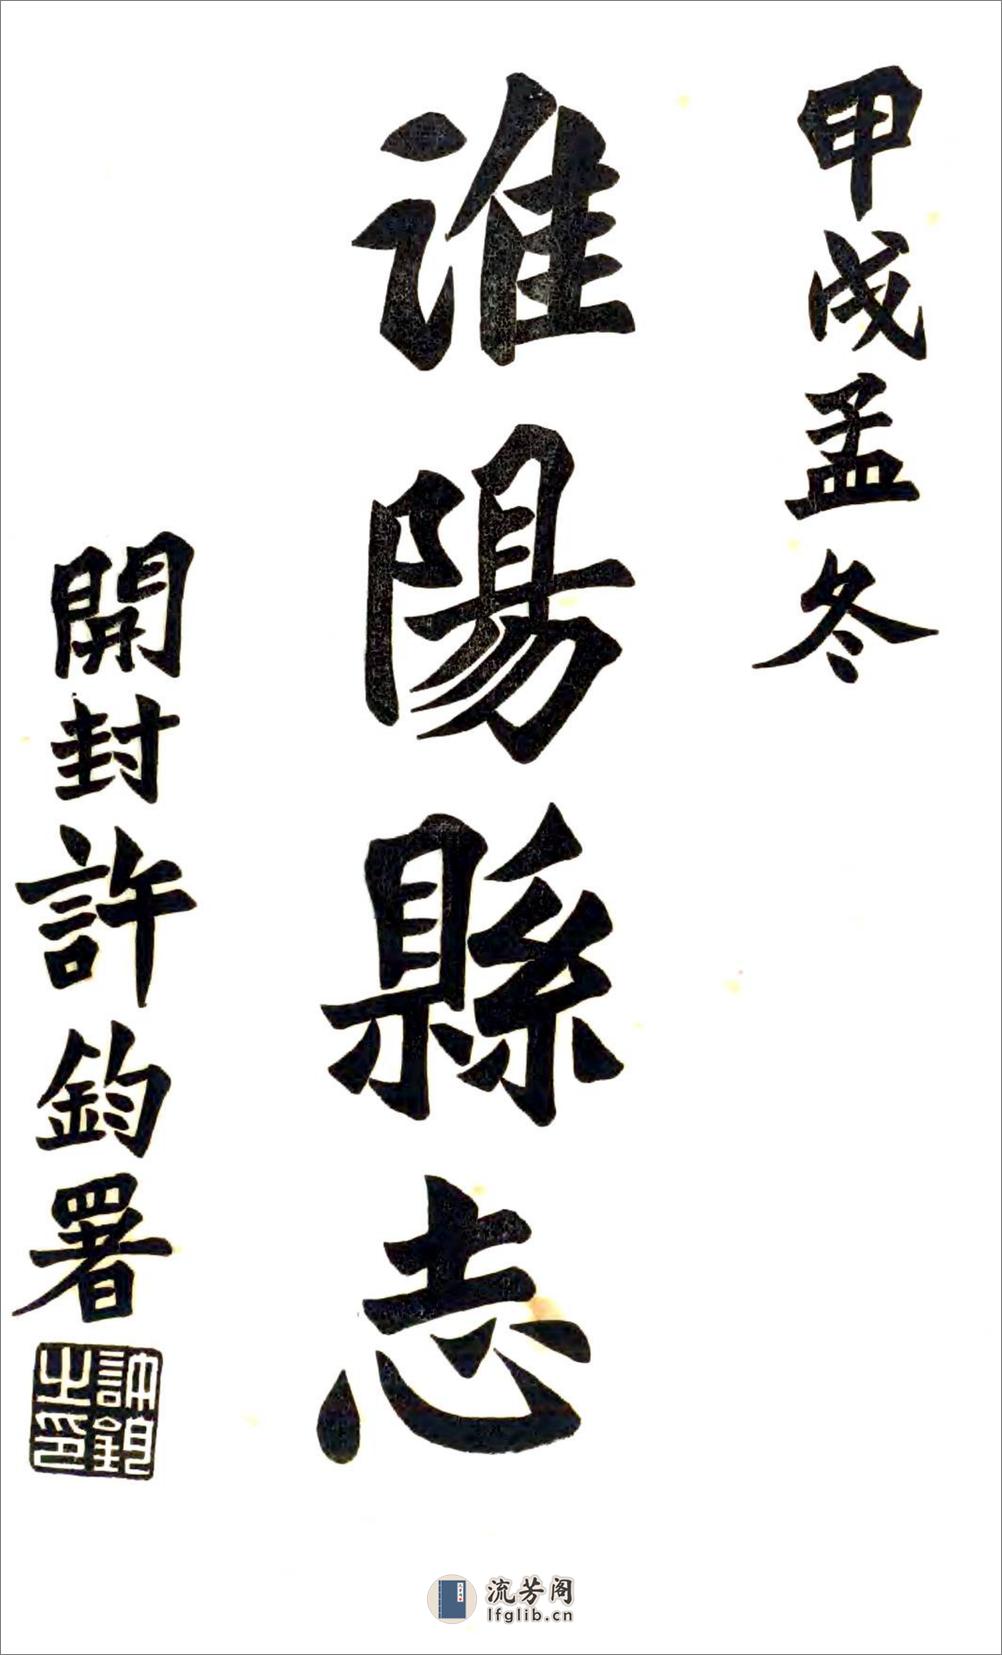 甲戌孟冬
淮陽縣志
開封許鈞署
許鈞之印
流芳阁
lfglib.cn